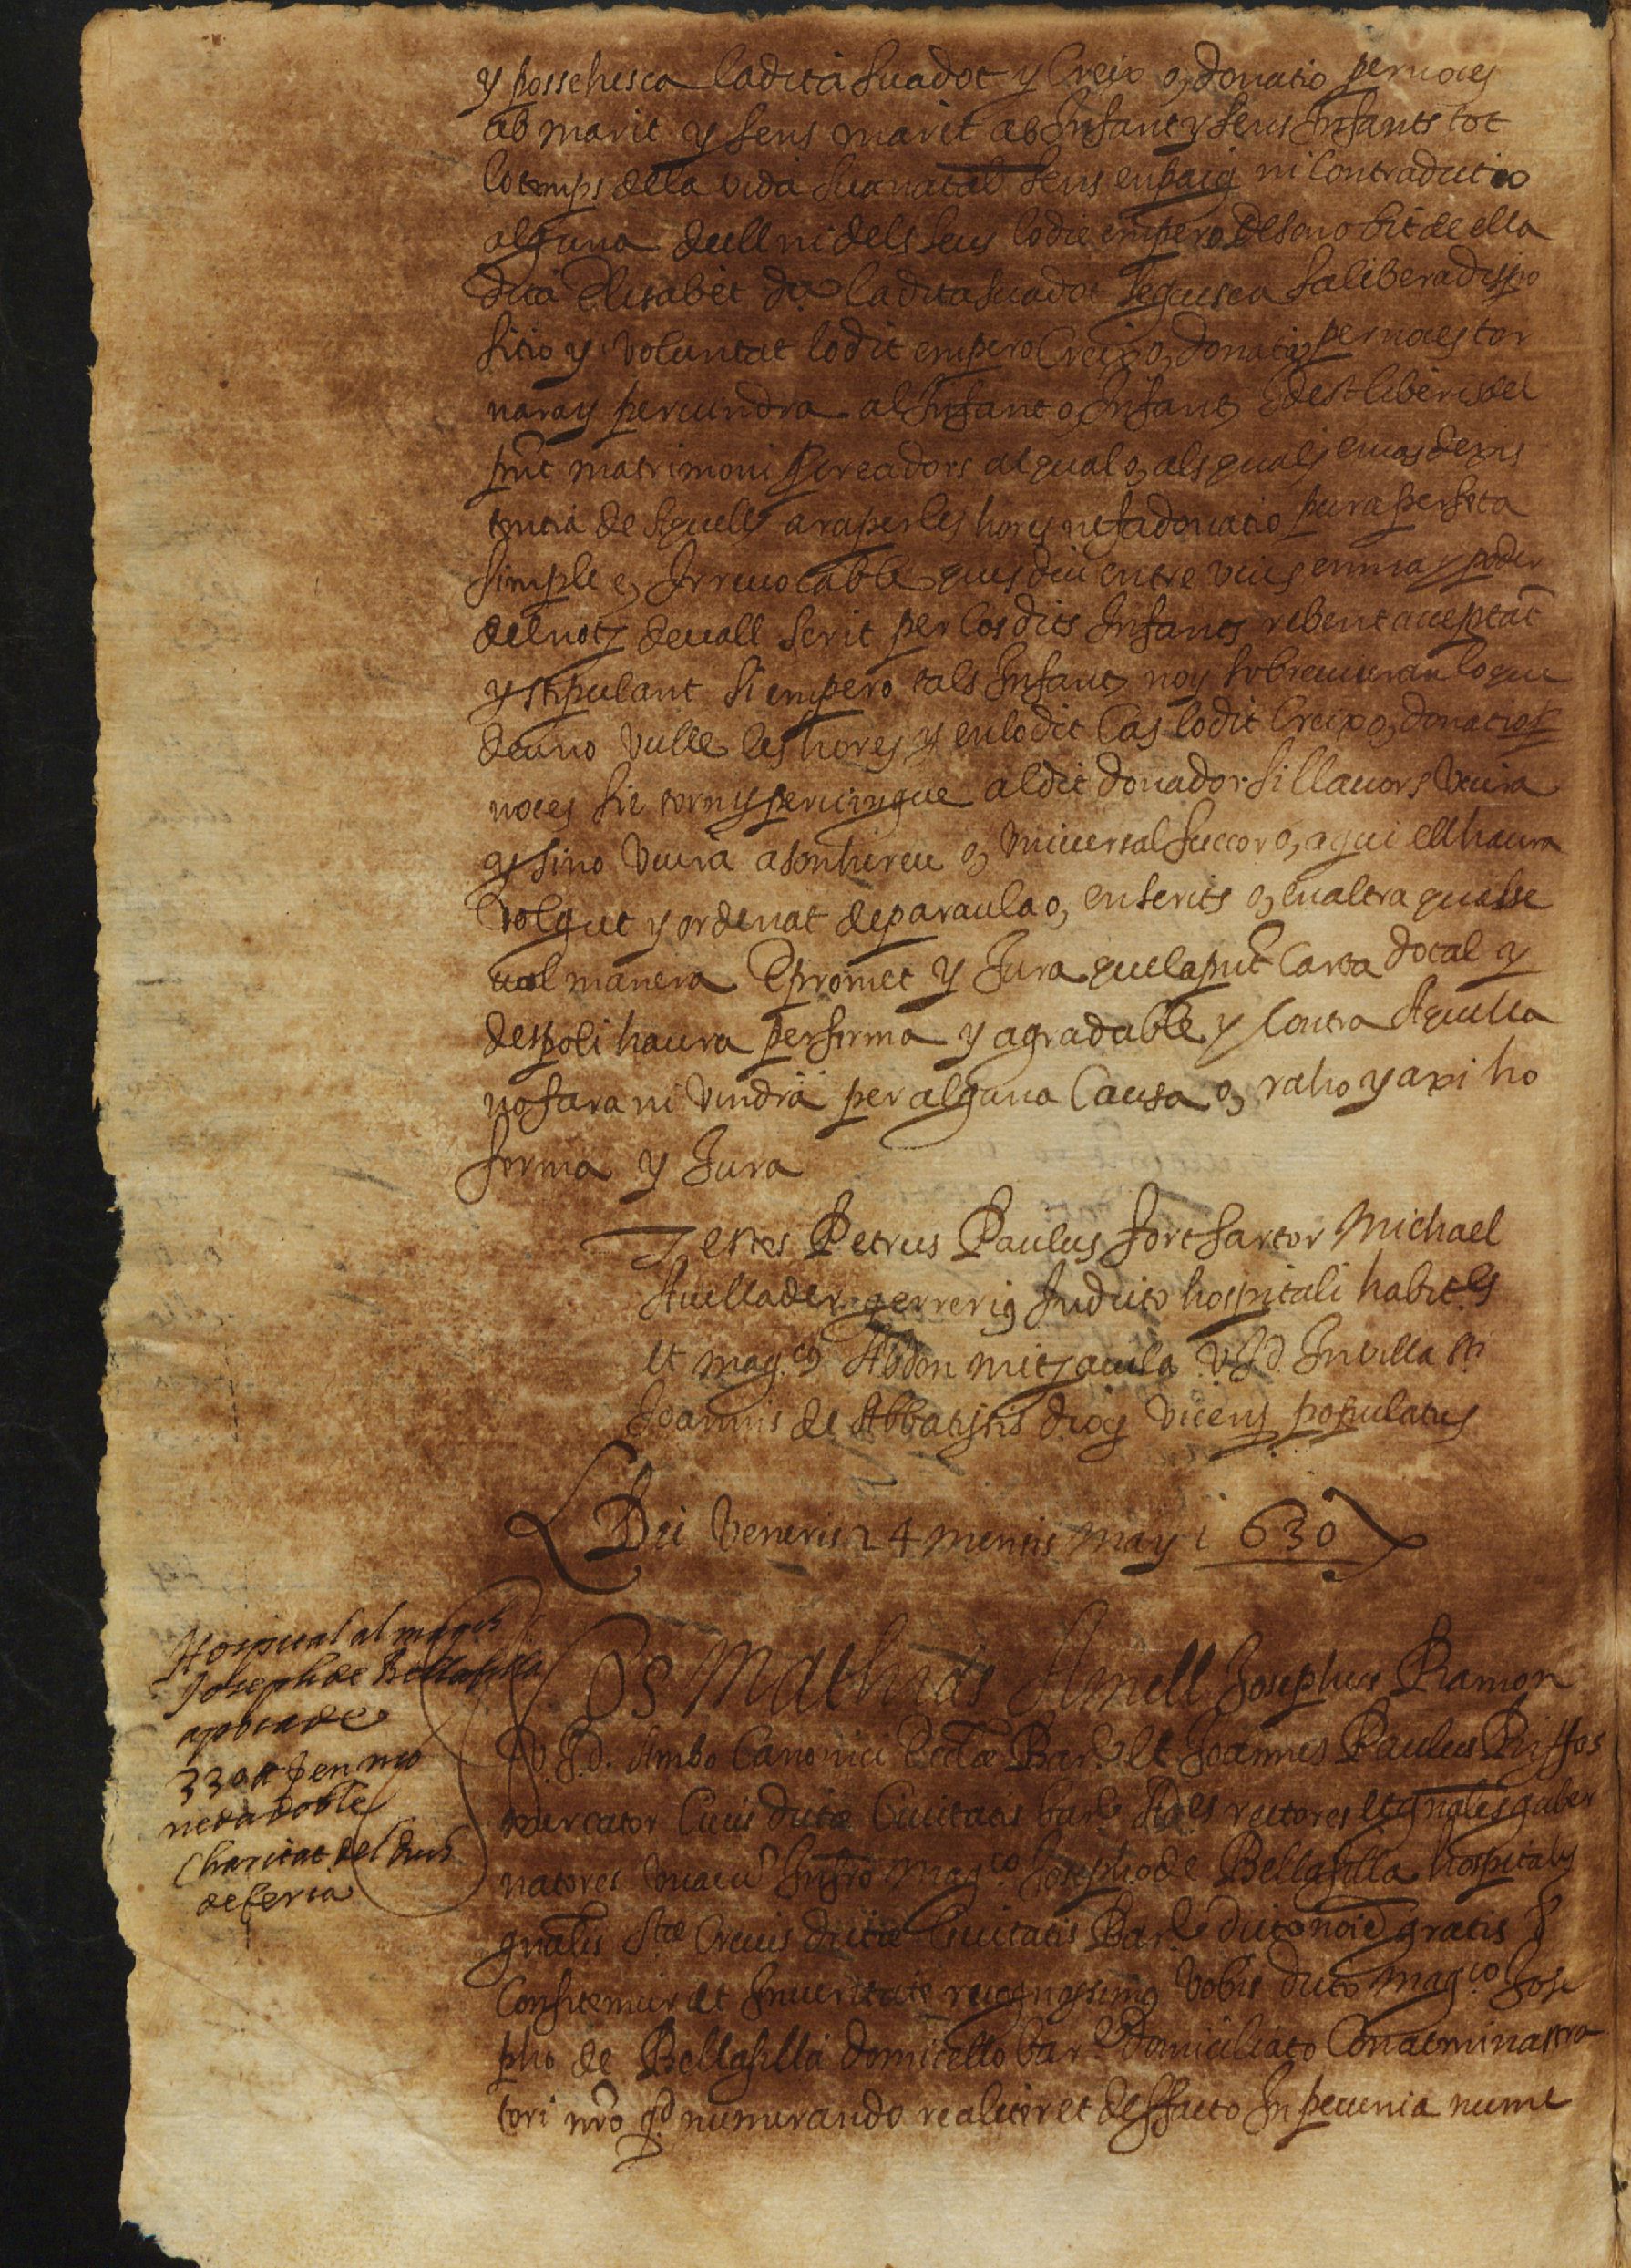 y possehesca la dita sua dot y Creix o, donatio per noces
ab marit y sens marit ab Infant y sens Infants tot
lo temps dela vida sua natal sens enpaig ni Contradictio
alguna dell ni dels seus lo die empero del son obit de ella
dita Elisabet de la dita sua dot seguesca sa libera dispo
sitio y voluntat lo dit empero Creix o, donatio per noces tor
nara y pervindra al Infant o, Infants del
pnt matrimoni procreadors al qual o, als quals en cas de exis
tentia de aquells ara per les hores ne fa donatio pura perfeta
simple e, Irrevocable ques diu entre vius en ma y poder
del not devall scrit per los dits Infants rebent acceptat
y stipulant si empero tals Infants noy sobreviuran lo que
Deu no vulle les hores y en lo dit Cas lo dit Creix o, donatio per
noces sie torn y pervingue al dit donador si llavors viura
y si no viura a son hereu o, universal succor o, a qui ell haura
volgut y ordenat de paraula o, en scrits o, en altra qualse
vol manera E promet y Jura que la pnt Carta dotal y
despoli haura per ferma y agradable y Contra Aquella
no fara ni vindra per alguna Causa o, raho y axi ho
ferma y Jura
Testes Petrus Paulus fort sartor Michael
Avellader gerrerius In dicto hospitali habit.es
et mag.cus Abdon mitjavila V.J.d. In villa St.
Joannis de Abbatissis diocs Vicens populatus
Die Veneris 24 mensis may 1630
Hospital al magch
Joseph de Bellafilla
apoca de
330 ₶ en mo
neda doble
Charitat del
de feria
Nos Mathias Amell Josephus Ramon
V.J.d. Ambo Canonici Ecclæ Bar.e et Joannes Paulus Riffos
mercator Civis dictæ Civitatis bar.e rectores et gnales guber
natores una cu Infro mag.co Josepho de Bellafilla hospitalis
gnalis S.tæ Crucis dictæ Civitatis Bar.e dicto noie gratis &
Confitemur et In veritate recognoscimus Vobis dicto mag.co Jose
pho de Bellafilla domicello bar.e domiciliato Conadminastra
tori nro qd numerando realiter et de ffacto In pecunia nume